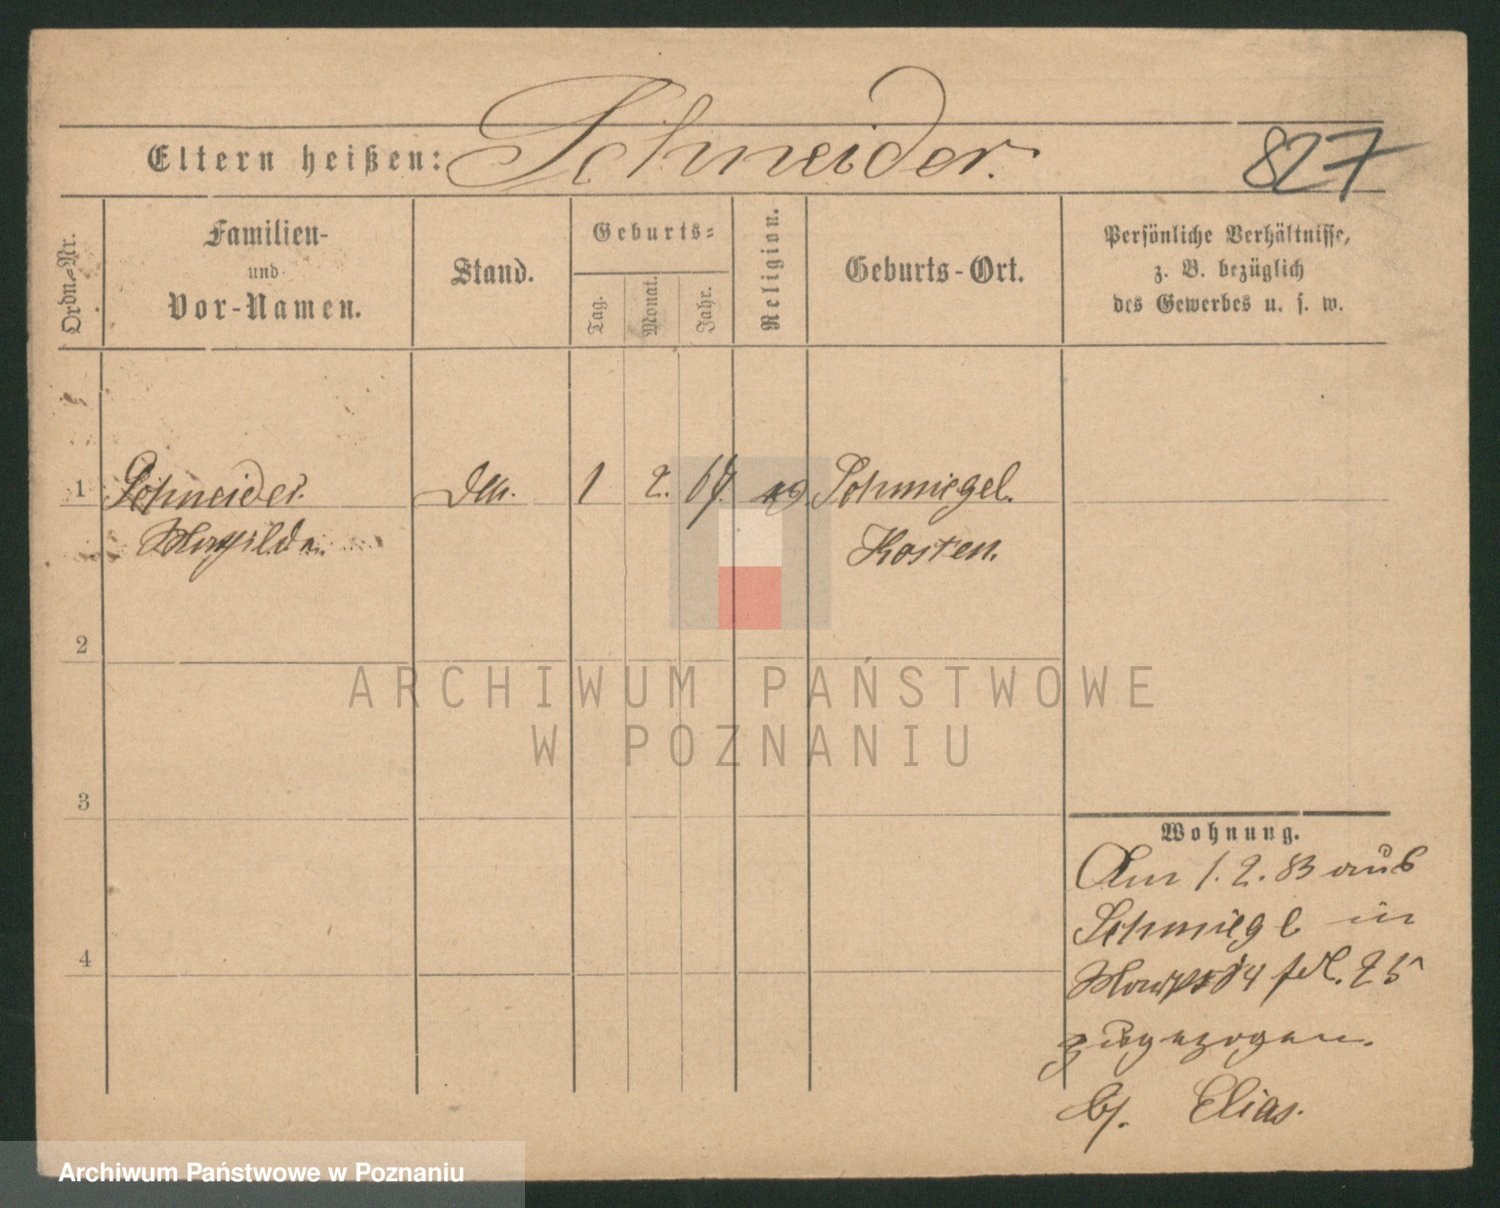 Eltern heißen: Schneider. 827
Ordn.-Nr.
Familien-
und
Vor-Namen.
Stand.
Geburts-
Tag.
Monat.
Jahr.
Religion.
Geburts-Ort.
Persönliche Verhältnisse,
z. B. bezüglich
des Gewerbes u. s. w.
1 Schneider 1 2. 67. Schmiegel.
Mathilde. Kosten.
2
3
4
Wohnung.
Am 1. 2. 83 aus
Schmiegel in
25
zugezogen.
b/. Elias.
ARCHIWUM PAŃSTWOWE
W POZNANIU
Archiwum Państwowe w Poznaniu